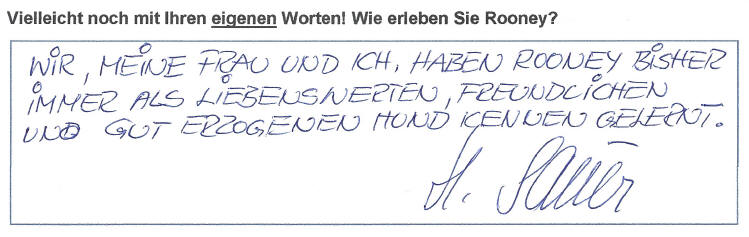 Vielleicht noch mit Ihren eigenen Worten! Wie erleben Sie Rooney?
WIR, MEINE FRAU UND ICH, HABEN ROONEY BISHER
IMMER ALS LIEBENSWERTEN, FREUNDLICHEN
UND GUT ERZOGENEN HUND KENNEN GELERNT.